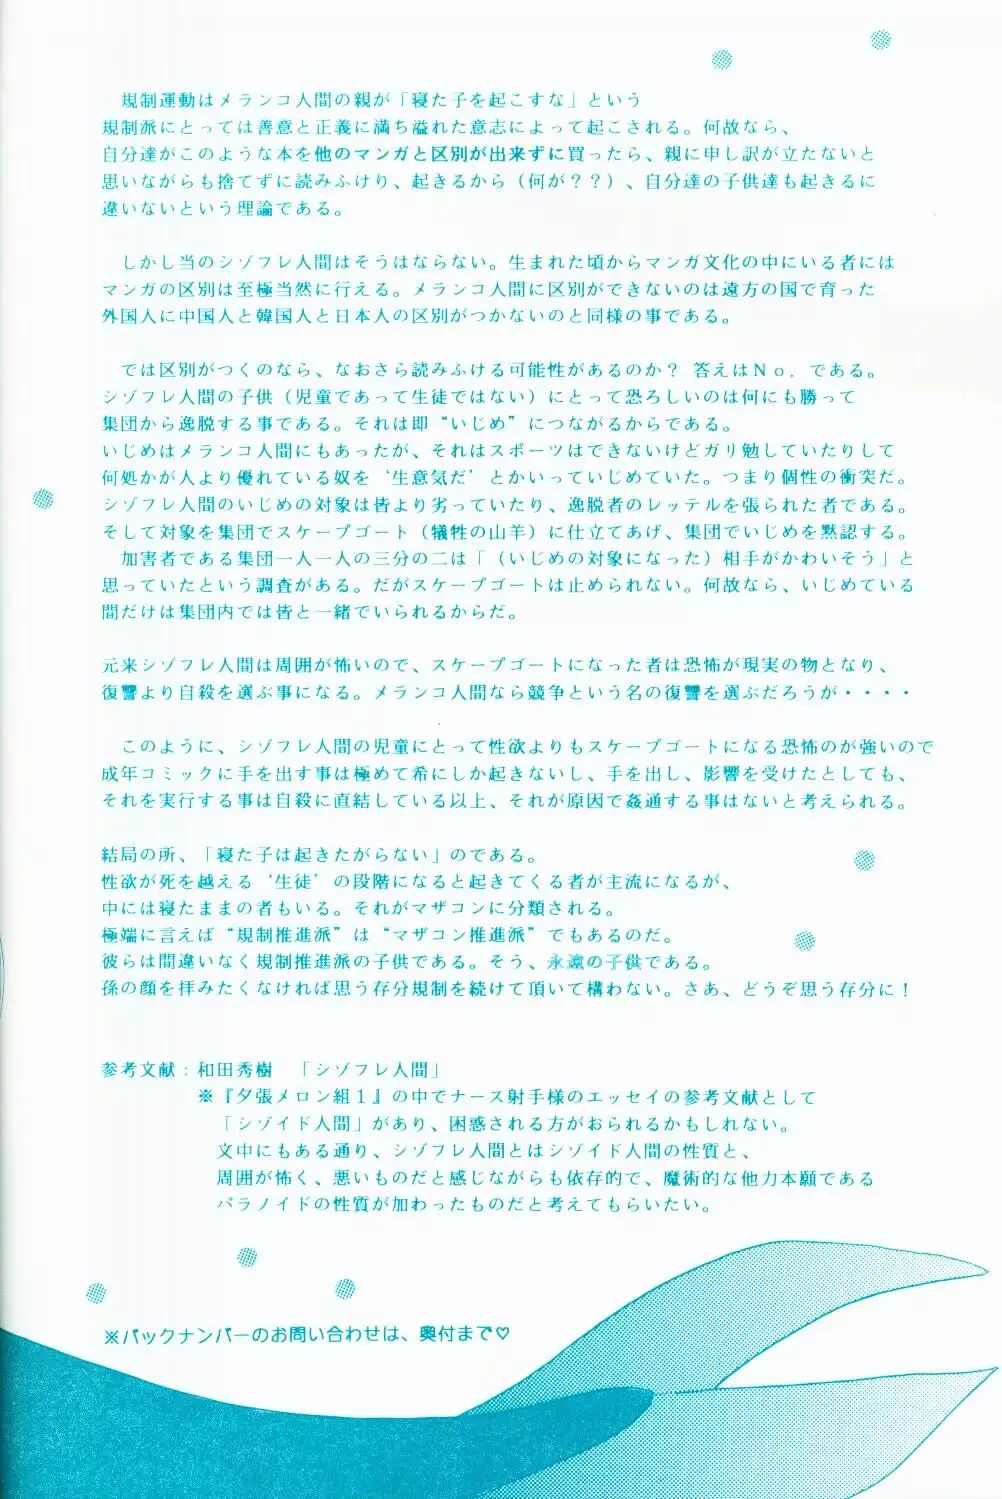 規制運動はメランコ人間の親が「寝た子を起こすな」という
規制派にとっては善意と正義に満ち溢れた意志によって起こされる。何故なら、
自分達がこのような本を他のマンガと区別が出来ずに買ったら、親に申し訳が立たないと
思いながらも捨てずに読みふけり、起きるから（何が？？）、自分達の子供達も起きるに
違いないという理論である。
しかし当のシゾフレ人間はそうはならない。生まれた頃からマンガ文化の中にいる者には
マンガの区別は至極当然に行える。メランコ人間に区別ができないのは遠方の国で育った
外国人に中国人と韓国人と日本人の区別がつかないのと同様の事である。
では区別がつくのなら、なおさら読みふける可能性があるのか？ 答えはＮｏ．である。
シゾフレ人間の子供（児童であって生徒ではない）にとって恐ろしいのは何にも勝って
集団から逸脱する事である。それは即“いじめ”につながるからである。
いじめはメランコ人間にもあったが、それはスポーツはできないけどガリ勉していたりして
何処かが人より優れている奴を‘生意気だ’とかいっていじめていた。つまり個性の衝突だ。
シゾフレ人間のいじめの対象は皆より劣っていたり、逸脱者のレッテルを張られた者である。
そして対象を集団でスケープゴート（犠牲の山羊）に仕立てあげ、集団でいじめを黙認する。
加害者である集団一人一人の三分の二は「（いじめの対象になった）相手がかわいそう」と
思っていたという調査がある。だがスケープゴートは止められない。何故なら、いじめている
間だけは集団内では皆と一緒でいられるからだ。
元来シゾフレ人間は周囲が怖いので、スケープゴートになった者は恐怖が現実の物となり、
復讐より自殺を選ぶ事になる。メランコ人間なら競争という名の復讐を選ぶだろうが・・・・
このように、シゾフレ人間の児童にとって性欲よりもスケープゴートになる恐怖のが強いので
成年コミックに手を出す事は極めて希にしか起きないし、手を出し、影響を受けたとしても、
それを実行する事は自殺に直結している以上、それが原因で姦通する事はないと考えられる。
結局の所、「寝た子は起きたがらない」のである。
性欲が死を越える‘生徒’の段階になると起きてくる者が主流になるが、
中には寝たままの者もいる。それがマザコンに分類される。
極端に言えば“規制推進派”は“マザコン推進派”でもあるのだ。
彼らは間違いなく規制推進派の子供である。そう、永遠の子供である。
孫の顔を拝みたくなければ思う存分規制を続けて頂いて構わない。さあ、どうぞ思う存分に！
参考文献：和田秀樹 「シゾフレ人間」
※『夕張メロン組１』の中でナース射手様のエッセイの参考文献として
「シゾイド人間」があり、困惑される方がおられるかもしれない。
文中にもある通り、シゾフレ人間とはシゾイド人間の性質と、
周囲が怖く、悪いものだと感じながらも依存的で、魔術的な他力本願である
パラノイドの性質が加わったものだと考えてもらいたい。
※バックナンバーのお問い合わせは、奥付まで♡